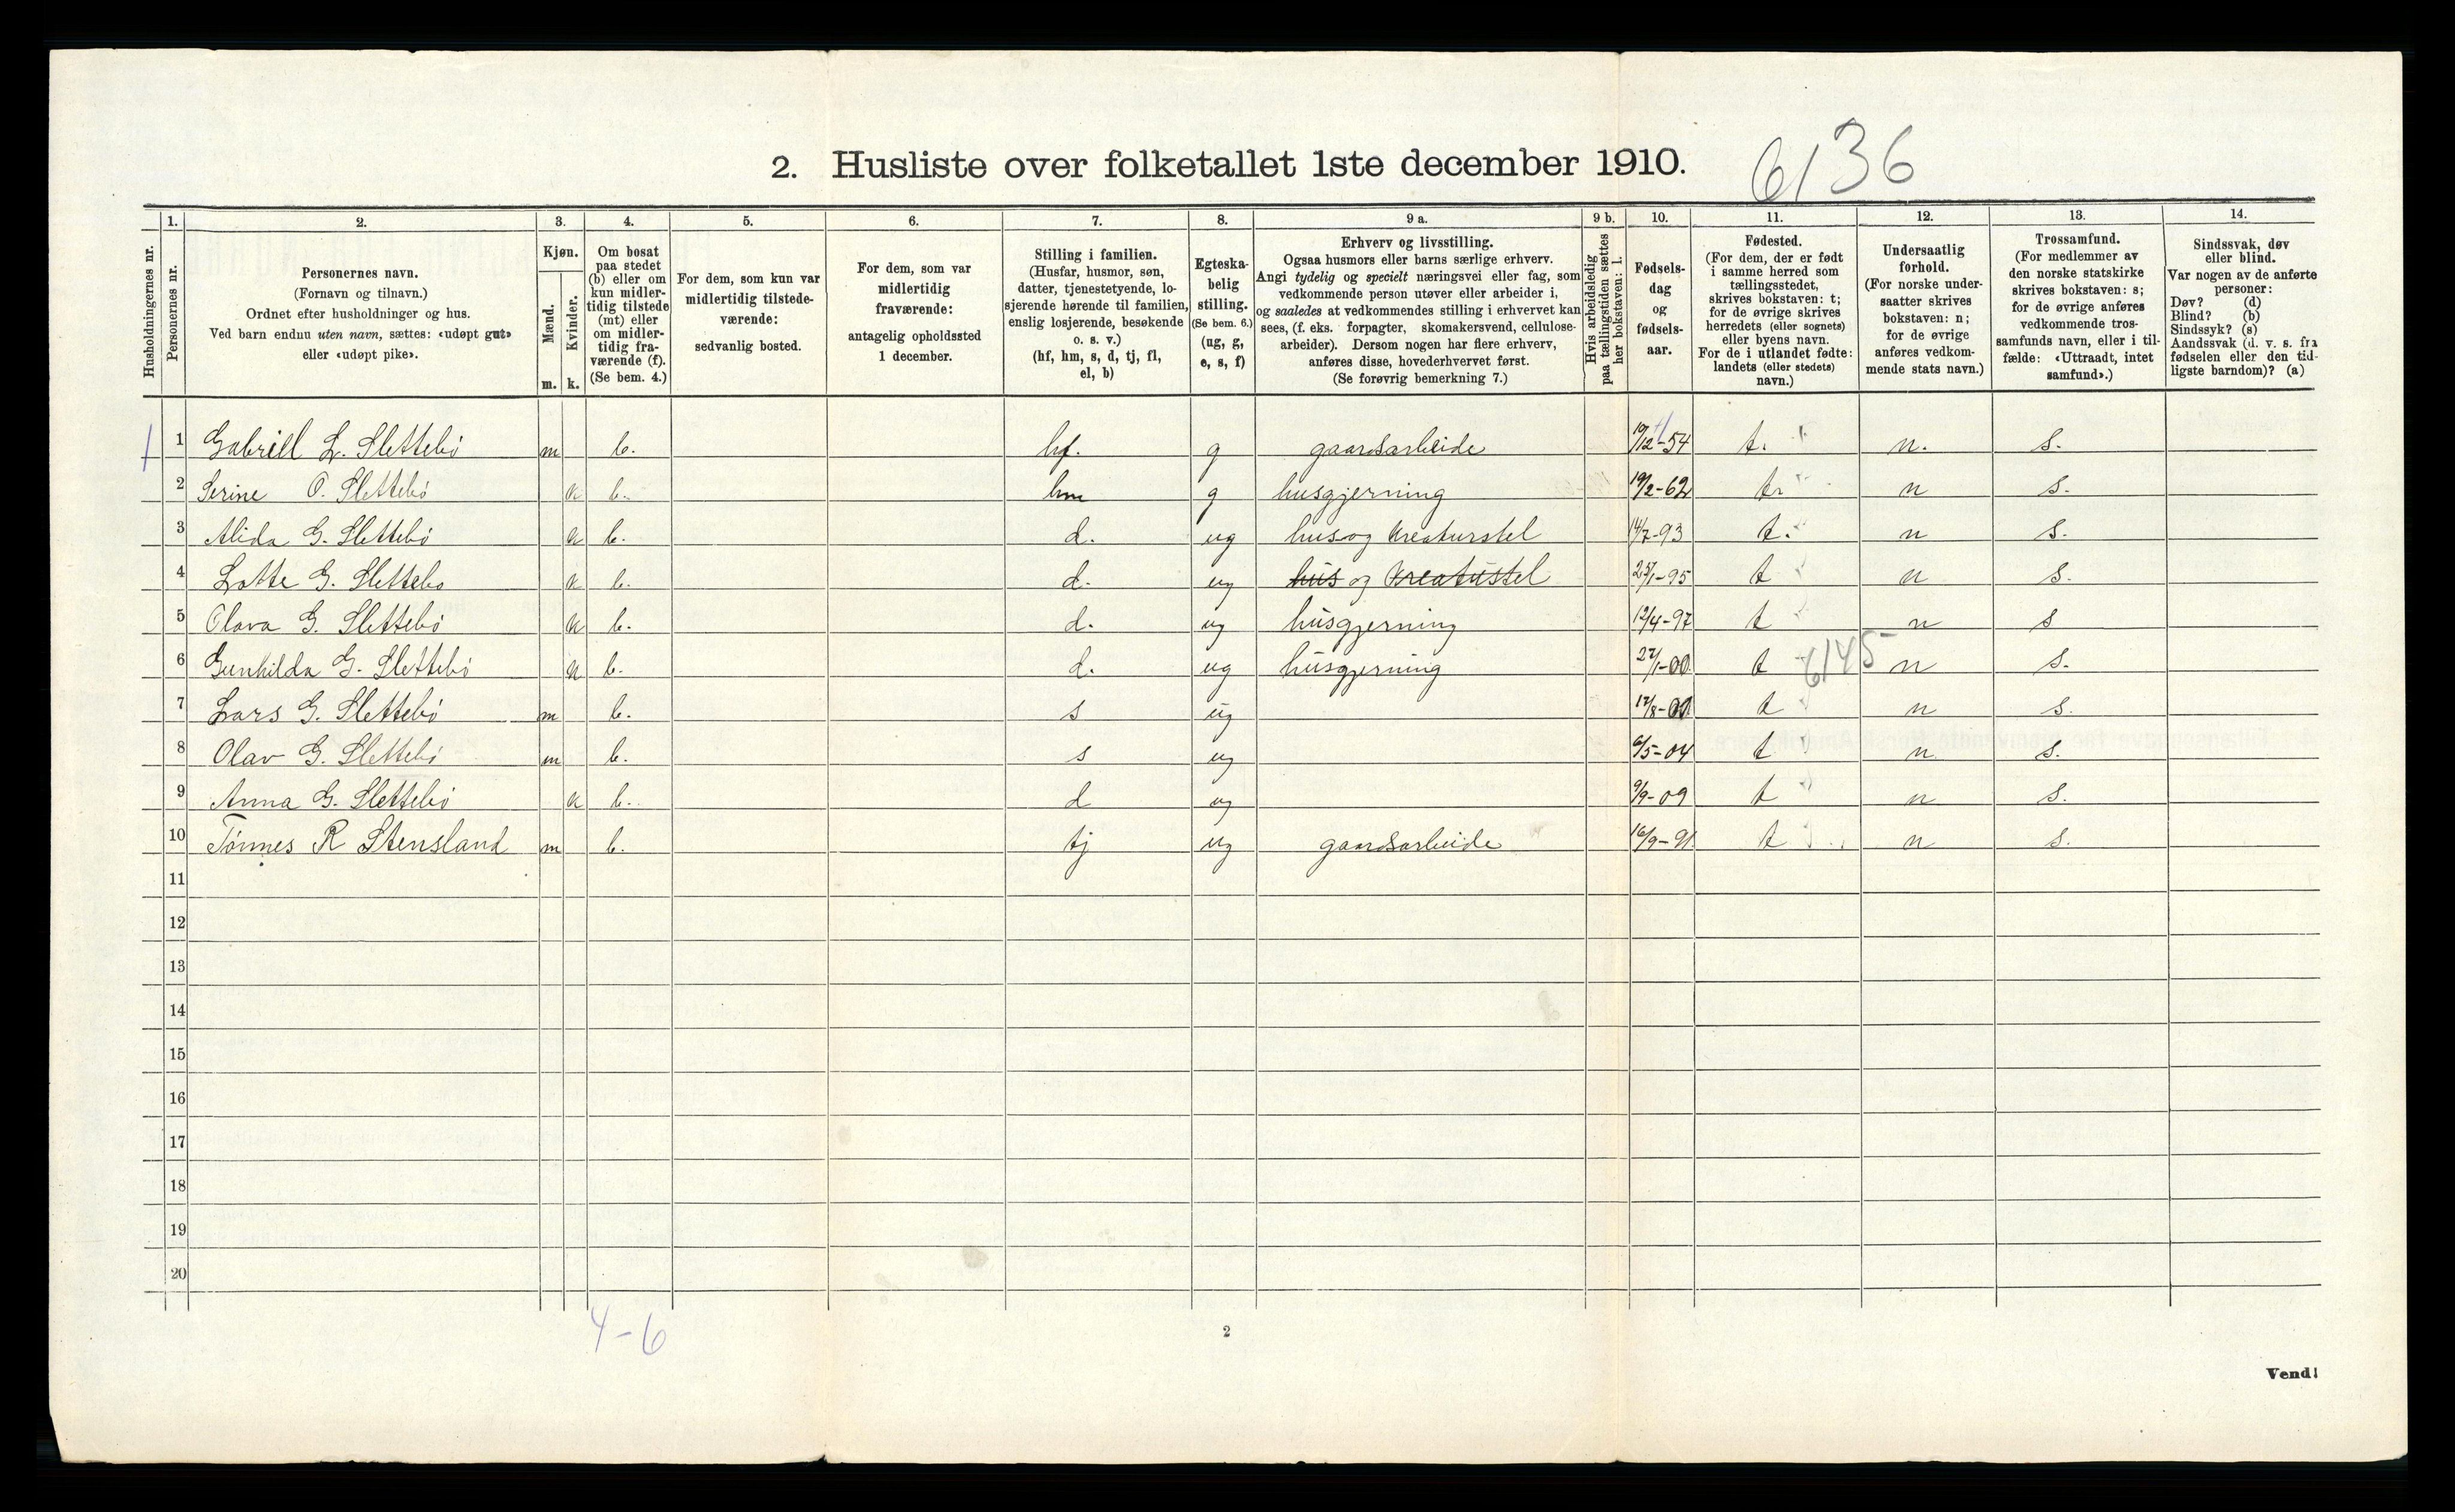 2. Husliste over folketallet 1ste december 1910. 6136
Husholdningernes nr.
1. Personernes nr.
2. Personernes navn.
(Fornavn og tilnavn.)
Ordnet efter husholdninger og hus.
Ved barn endnu uten navn, sættes: «udøpt gut»
eller «udøpt pike».
3. Kjøn.
Mænd. m.
Kvinder. k.
4. Om bosat
paa stedet
(b) eller om
kun midler-
tidig tilstede
(mt) eller
om midler-
tidig fra-
værende (f).
(Se bem. 4.)
5. For dem, som kun var
midlertidig tilstede-
værende:
sedvanlig bosted.
6. For dem, som var
midlertidig
fraværende:
antagelig opholdssted
1 december.
7. Stilling i familien.
(Husfar, husmor, søn,
datter, tjenestetyende, lo-
sjerende hørende til familien,
enslig losjerende, besøkende
o. s. v.)
(hf, hm, s, d, tj, fl,
el, b)
8. Egteska-
belig
stilling.
(Se bem. 6.)
(ug, g,
e, s, f)
9 a. Erhverv og livsstilling.
Ogsaa husmors eller barns særlige erhverv.
Angi tydelig og specielt næringsvei eller fag, som
vedkommende person utøver eller arbeider i,
og saaledes at vedkommendes stilling i erhvervet kan
sees, (f. eks. forpagter, skomakersvend, cellulose-
arbeider). Dersom nogen har flere erhverv,
anføres disse, hovederhvervet først.
(Se forøvrig bemerkning 7.)
9 b. Hvis arbeidsledig
paa tællingstiden sættes
her bokstaven: l.
10. Fødsels-
dag
og
fødsels-
aar.
11. Fødested.
(For dem, der er født
i samme herred som
tællingsstedet,
skrives bokstaven: t;
for de øvrige skrives
herredets (eller sognets)
eller byens navn.
For de i utlandet fødte:
landets (eller stedets)
navn.)
12. Undersaatlig
forhold.
(For norske under-
saatter skrives
bokstaven: n;
for de øvrige
anføres vedkom-
mende stats navn.)
13. Trossamfund.
(For medlemmer av
den norske statskirke
skrives bokstaven: s;
for de øvrige anføres
vedkommende tros-
samfunds navn, eller i til-
fælde: «Uttraadt, intet
samfund».)
14. Sindssvak, døv
eller blind.
Var nogen av de anførte
personer:
Døv? (d)
Blind? (b)
Sindssyk? (s)
Aandssvak (d. v. s. fra
fødselen eller den tid-
ligste barndom)? (a)
1 Gabriell L. Slettebö m b. hf. g gaardsarbeide 19/12-54 t. n. s.
2 Serine O. Slettebö k b. hm g husgjerning 19/2-62 t. n s.
3 Alida G. Slettebö k b. d. ug hus og kreaturstel 14/7-93 t. n s.
4 Lotte G. Slettebo k b. d. ug hus og kreatustel 25/1-95 t n s.
5 Olava G. Slettebö k b. d. ug husgjerning 12/4-97 t n s
6 Gunhilda G. Slettebö k b. d. ug husgjerning 27/1-00 t 6145 n s.
7 Lars G. Slettebö m b. s ug 17/8-01 t n s.
8 Olav G. Slettebö m b. s ug 6/5-04 t n s.
9 Anna G. Slettebö k b. d ug 9/9-09 t n s.
10 Tönnes R Stensland m b. tj ug gaardsarbeide 16/9-91 t n s.
11
12
13
14
15
16
17
18
19
20
4-6
2
Vend!